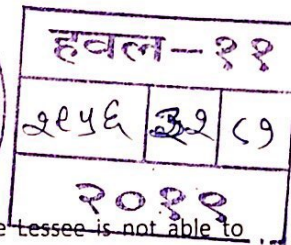 हवल-११
२१५६ ३२ ८१
२०११
e Lessee is not able to